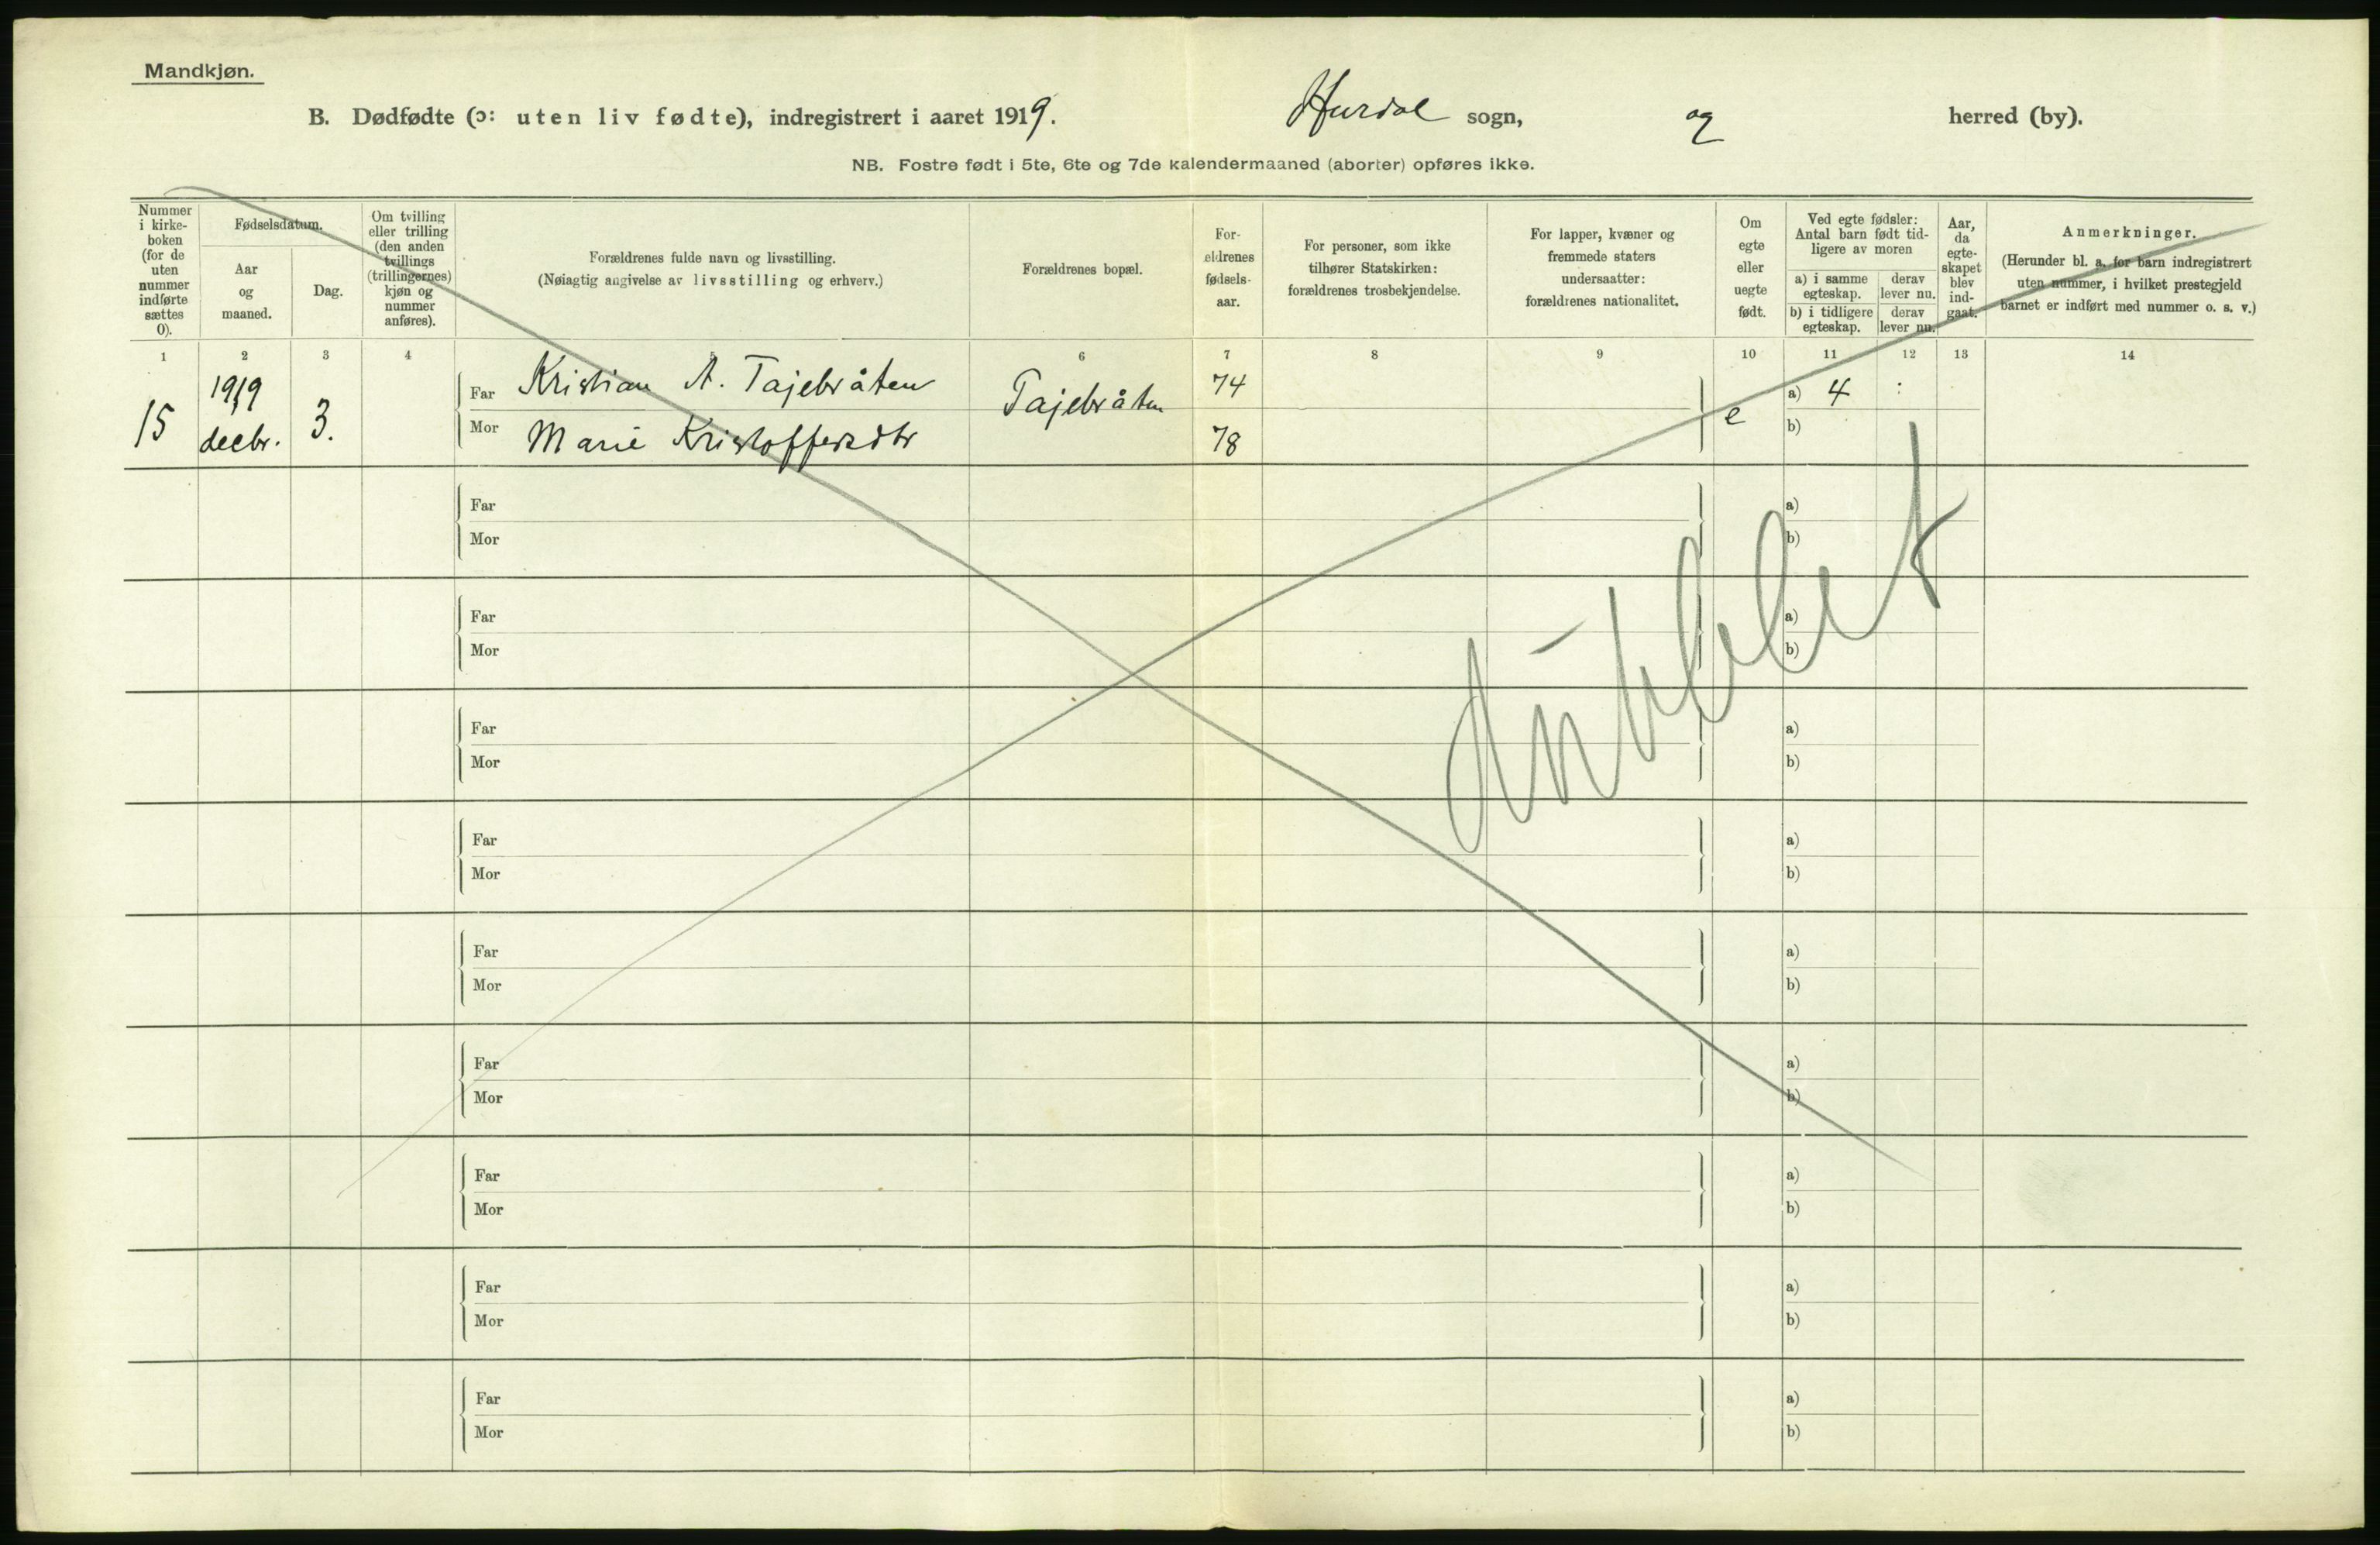 Mandkjøn.
B. Dødfødte (ɔ: uten liv fødte), indregistrert i aaret 1919. Hurdal sogn, og herred (by).
NB. Fostre født i 5te, 6te og 7de kalendermaaned (aborter) opføres ikke.
Nummer i kirke-boken (for de uten nummer indførte sættes 0).
Fødselsdatum.
Aar og maaned.
Dag.
Om tvilling eller trilling (den anden tvillings (trillingernes) kjøn og nummer anføres).
Forældrenes fulde navn og livsstilling.
(Nøiagtig angivelse av livsstilling og erhverv.)
Forældrenes bopæl.
For-ældrenes fødsels-aar.
For personer, som ikke tilhører Statskirken: forældrenes trosbekjendelse.
For lapper, kvæner og fremmede staters undersaatter: forældrenes nationalitet.
Om egte eller uegte født.
Ved egte fødsler: Antal barn født tid-ligere av moren
a) i samme egteskap.
derav lever nu.
b) i tidligere egteskap.
derav lever nu.
Aar, da egte-skapet blev ind-gaat.
Anmerkninger.
(Herunder bl. a. for barn indregistrert uten nummer, i hvilket prestegjeld barnet er indført med nummer o. s. v.)
1 2 3 4 5 6 7 8 9 10 11 12 13 14
15 1919 decbr. 3.
Far Kristian A. Tajebråten Tajebråten 74 e a) 4 :
Mor Marie Kristoffersdtr 78 b)
Far a)
Mor b)
Far a)
Mor b)
Far a)
Mor b)
Far a)
Mor b)
Far a)
Mor b)
Far a)
Mor b)
Far a)
Mor b)
Far a)
Mor b)
Far a)
Mor b)